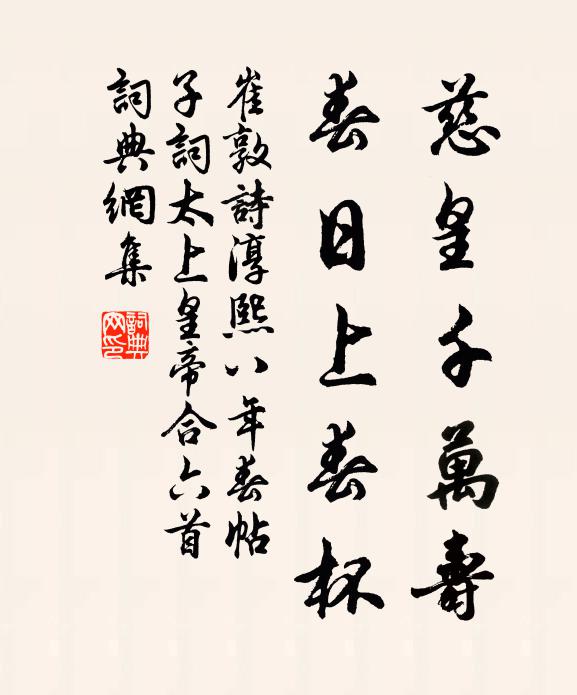 慈皇千萬壽
春日上春杯
崔敦詩淳熙八年春帖
子詞太上皇帝合六首
詞典網集
詞典
网印